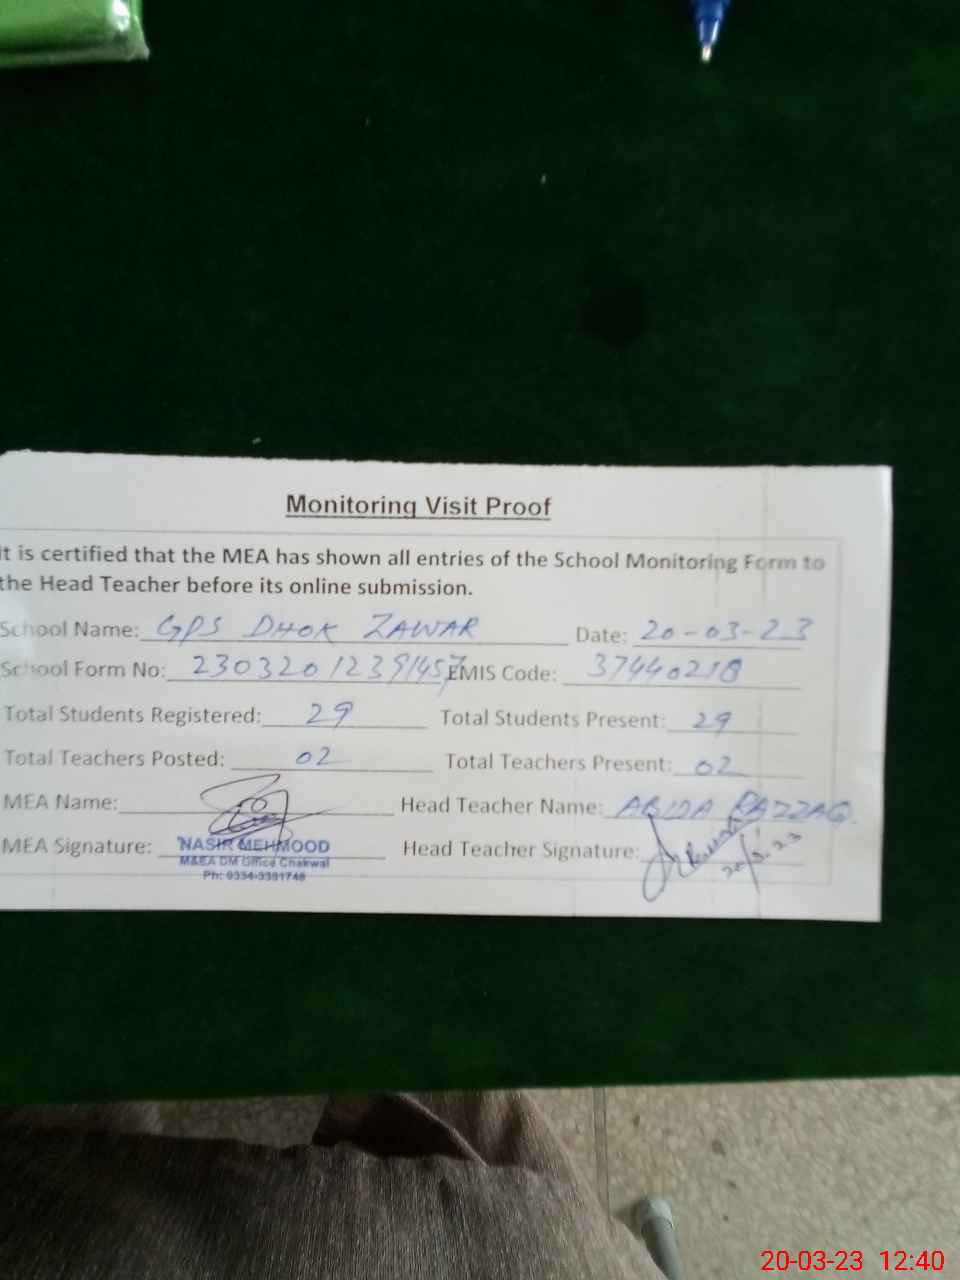 Monitoring Visit Proof
It is certified that the MEA has shown all entries of the School Monitoring Form to
the Head Teacher before its online submission.
School Name: GPS DHOK ZAWAR Date: 20-03-23
School Form No: 23032012391457 EMIS Code: 37440218
Total Students Registered: 29 Total Students Present: 29
Total Teachers Posted: 02 Total Teachers Present: 02
MEA Name: Head Teacher Name: ABIDA RAZZAQ.
MEA Signature: NASIR MEHMOOD Head Teacher Signature:
M&EA DM Office Chakwal
Ph: 0334-3391748
20-03-23 12:40